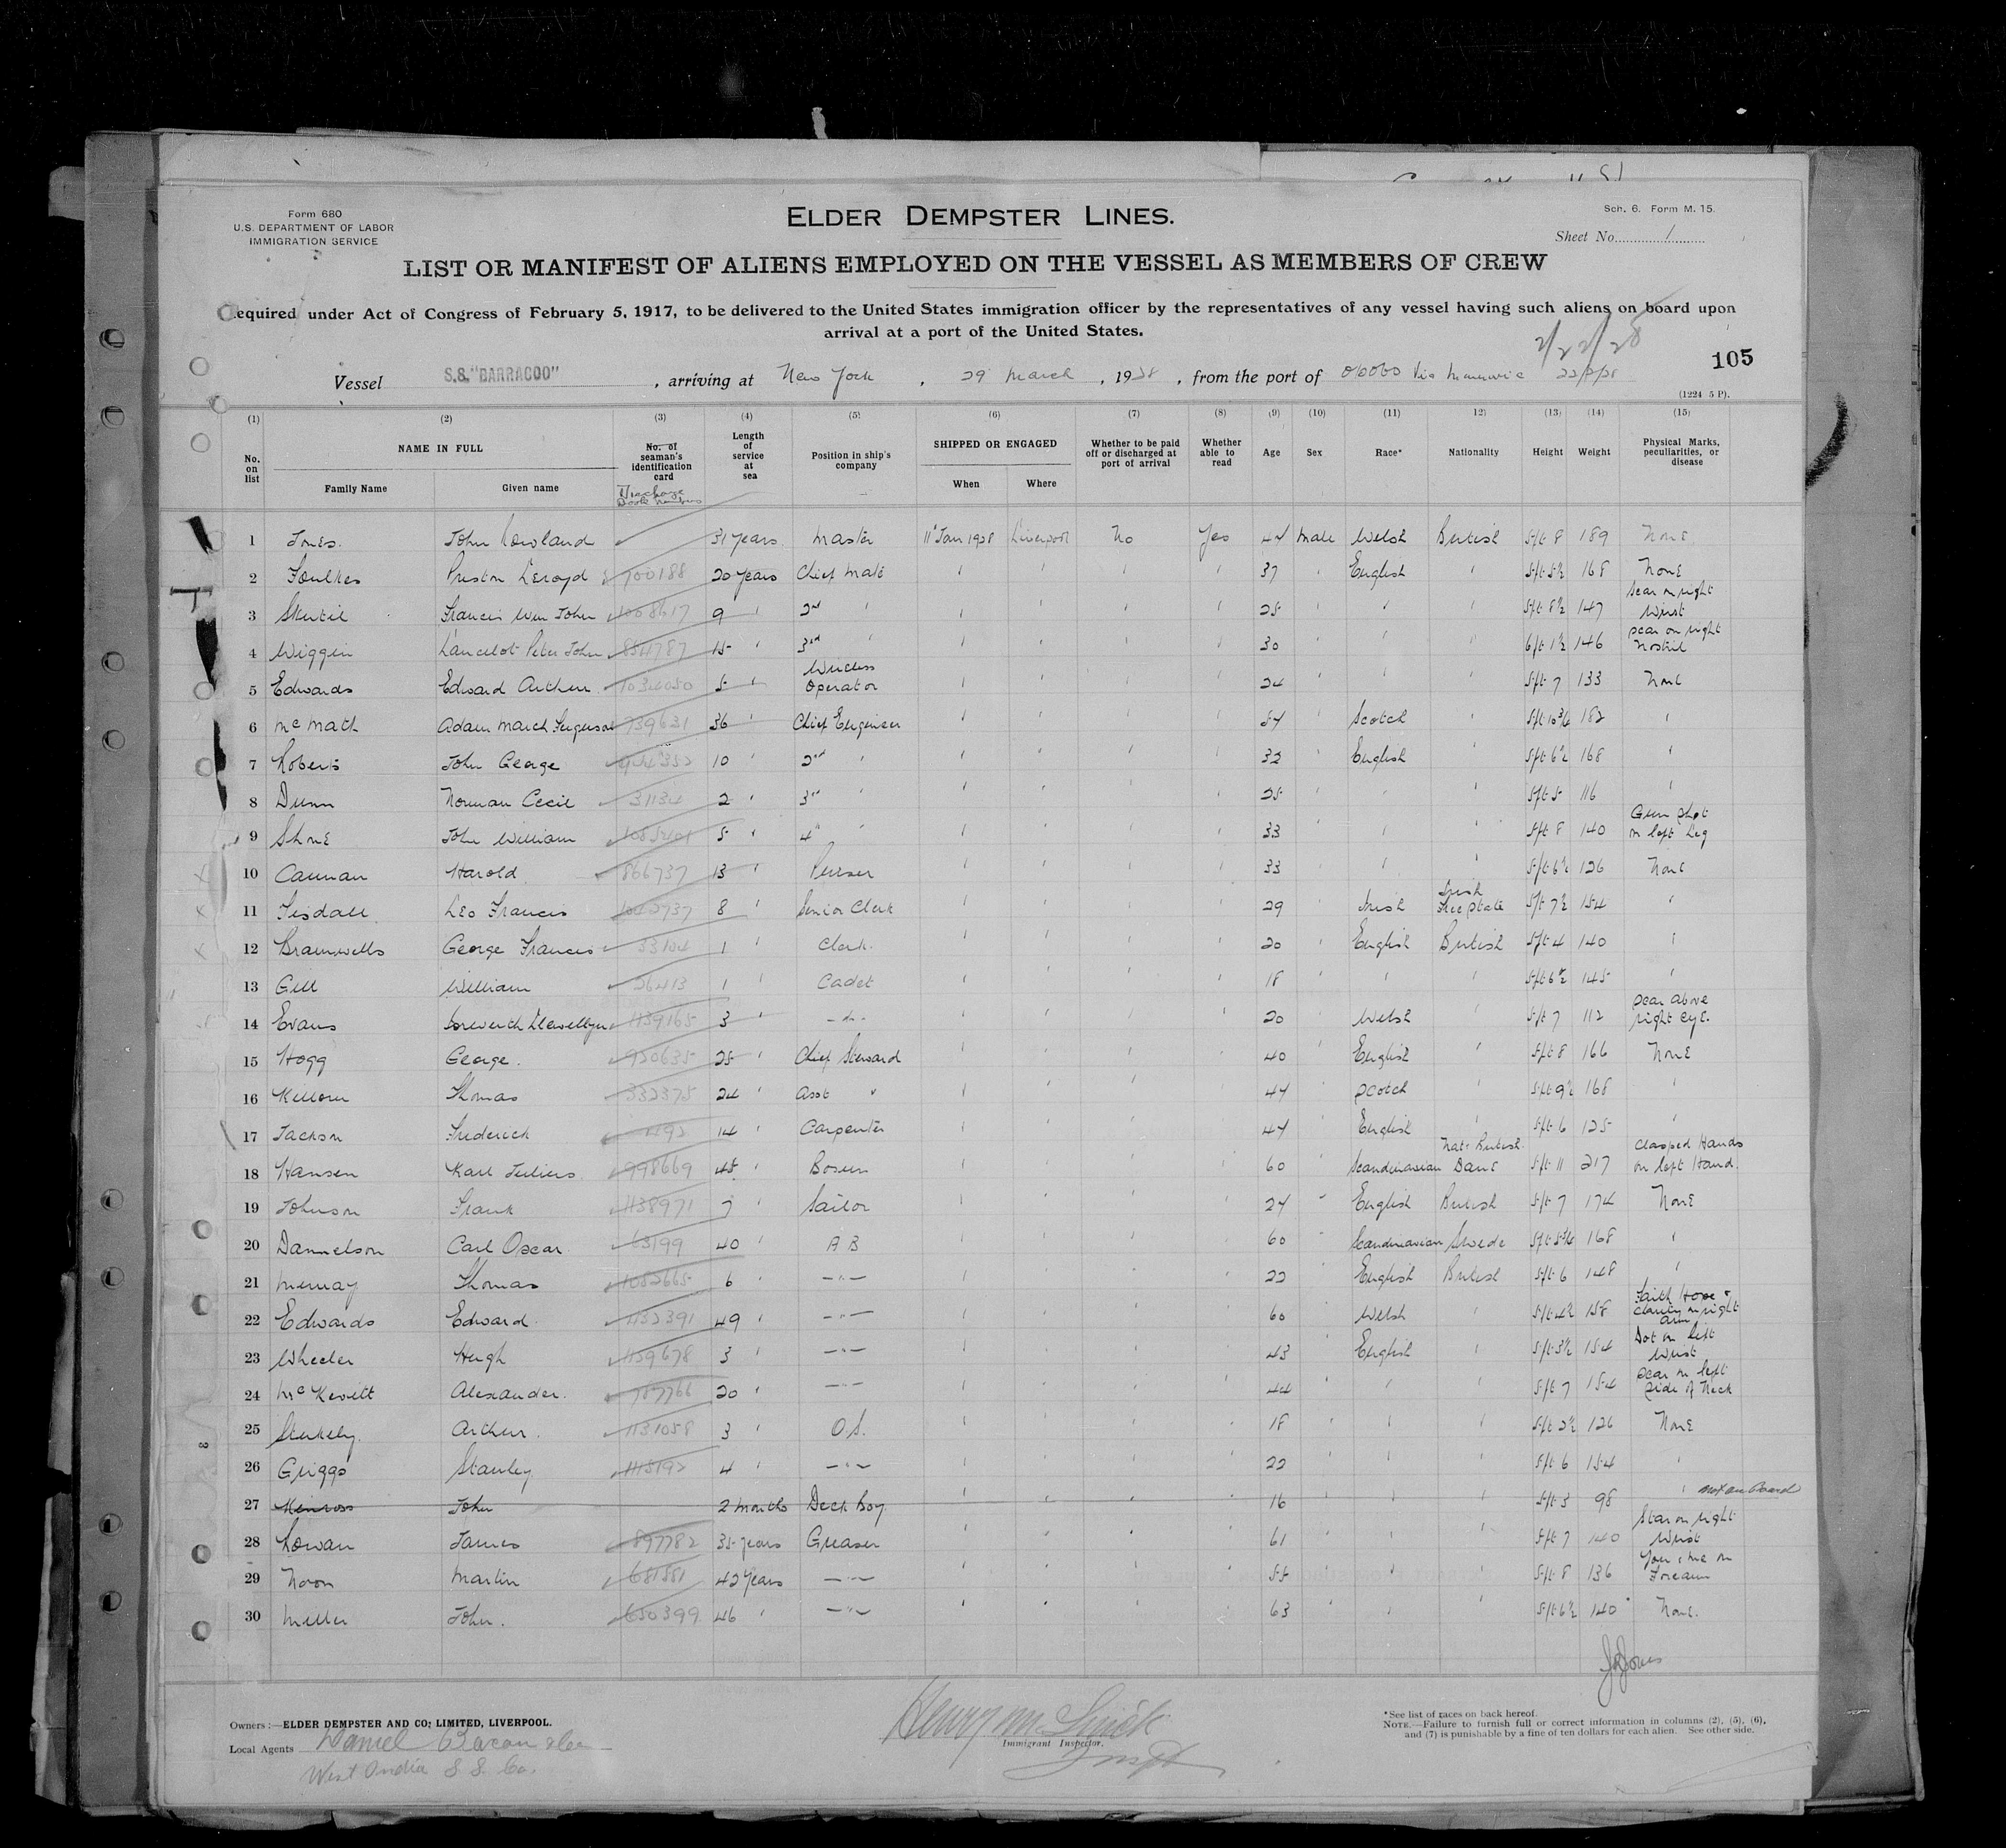 Form 680
U.S. DEPARTMENT OF LABOR
IMMIGRATION SERVICE
ELDER DEMPSTER LINES.
Sch. 6. Form M. 15.
Sheet No. 1
LIST OR MANIFEST OF ALIENS EMPLOYED ON THE VESSEL AS MEMBERS OF CREW
equired under Act of Congress of February 5, 1917, to be delivered to the United States immigration officer by the representatives of any vessel having such aliens on board upon
arrival at a port of the United States.
2/22/28
105
Vessel S.S. "BARRACOO" , arriving at New York , 29 March , 1928 , from the port of Opobo Via 22/2/28
(1224 5 P).
(1) (2) (3) (4) (5) (6) (7) (8) (9) (10) (11) 12) (13) (14) (15)
No. on list NAME IN FULL Family Name Given name No. of seaman's identification card Discharge Book numbers Length of service at sea Position in ship's company SHIPPED OR ENGAGED When Where Whether to be paid off or discharged at port of arrival Whether able to read Age Sex Race* Nationality Height Weight Physical Marks, peculiarities, or disease
1 Jones. John Rowland 31 years Master 11 Jan 1928 Liverpool No Yes 44 Male Welsh British 5ft 8 189 None
2 Foulkes Preston Leroyd 700188 20 years Chief Mate ' ' ' ' 37 ' English ' 5ft 5½ 168 None
3 Francis Wm John 1008617 9 ' 2nd ' ' ' ' ' 25 ' ' ' 5ft 8½ 147 Scar on right Wrist
4 Wiggin Lancelot Peter John 854787 15 ' 3rd ' ' ' ' ' 30 ' ' ' 6ft 1½ 146 Scar on right Nostril
5 Edwards Edward Arthur 1034050 5 ' Wireless Operator ' ' ' ' 24 ' ' ' 5ft 7 133 None
6 McMath Adam March Ferguson 739631 36 ' Chief Engineer ' ' ' ' 54 ' Scotch ' 5ft 10¾ 182 '
7 Roberts John George 10 ' 2nd ' ' ' ' ' 32 ' English ' 5ft 6½ 168 '
8 Dunn Norman Cecil 31134 2 ' 3rd ' ' ' ' ' 25 ' ' ' 5ft 5 116 '
9 Shone John William 5 ' 4th ' ' ' ' ' 33 ' ' ' 5ft 8 140 Gun shot on left Leg
10 Harold 866737 13 ' Purser ' ' ' ' 33 ' ' ' 5ft 6½ 126 None
11 Tisdall Leo Francis 1042737 8 ' Senior Clerk ' ' ' ' 29 ' Irish Irish Free State 5ft 7½ 154 '
12 Bramwells George Francis 33104 1 ' Clerk. ' ' ' ' 20 ' English British 5ft 4 140 '
13 Gill William 26413 1 ' Cadet ' ' ' ' 18 ' ' ' 5ft 6½ 145 '
14 Evans Iorwerth Llewellyn 1139165 3 ' -do- ' ' ' ' 20 ' Welsh ' 5ft 7 112 Scar above right eye.
15 Hogg George. 950635 25 ' Chief Steward ' ' ' ' 40 ' English ' 5ft 8 166 None
16 Thomas 332375 24 ' Asst " ' ' ' ' 44 ' Scotch ' 5ft 9½ 168 '
17 Jackson Frederick 14 ' Carpenter ' ' ' ' 47 ' English ' 5ft 6 125 '
18 Hansen Karl Julius 998669 45 ' Bosun ' ' ' ' 60 ' Scandinavian Nat: British. Dane 5ft 11 217 Clasped Hands on left Hand.
19 Johnson Frank 1138971 7 ' Sailor ' ' ' ' 24 ' English British 5ft 7 174 None
20 Dannelson Carl Oscar 63199 40 ' A B ' ' ' ' 60 ' Scandinavian Swede 168 '
21 Thomas 1052665 6 ' —"— ' ' ' ' 22 ' English British 5ft 6 148 '
22 Edwards Edward. 1132391 49 ' —"— ' ' ' ' 60 ' Welsh ' 5ft 4½ 158 Faith Hope & Charity on right arm
23 Wheeler Hugh 1139678 3 ' —"— ' ' ' ' 43 ' English ' 5ft 3½ 154 Dot on left Wrist
24 McKevitt Alexander. 20 ' —"— ' ' ' ' 44 ' ' ' 5ft 7 154 Scar on left side of Neck
25 Stukely. Arthur. 1131058 3 ' O.S. ' ' ' ' 18 ' ' ' 5ft 2½ 126 None
26 Griggs Stanley 1115192 4 ' —"— ' ' ' ' 22 ' ' ' 5ft 6 154 '
27 Kinross John 2 months Deck Boy ' ' ' ' 16 ' ' ' 5ft 3 98 ' not on board
28 Rowan James 897782 35 years Greaser ' ' ' ' 61 ' ' ' 5ft 7 140 Star on right Wrist
29 Noon Martin 681551 42 years —"— ' ' ' ' 55 ' ' ' 5ft 8 136 You & me on Forearm
30 Miller John. 650399 46 ' —"— ' ' ' ' 63 ' ' ' 5ft 6½ 140 None.
J R Jones
Owners:—ELDER DEMPSTER AND CO; LIMITED, LIVERPOOL.
Local Agents Daniel Bacon
West India S. S. Co.
Henry M.
Immigrant Inspector.
*See list of races on back hereof.
NOTE.—Failure to furnish full or correct information in columns (2), (5), (6),
and (7) is punishable by a fine of ten dollars for each alien. See other side.